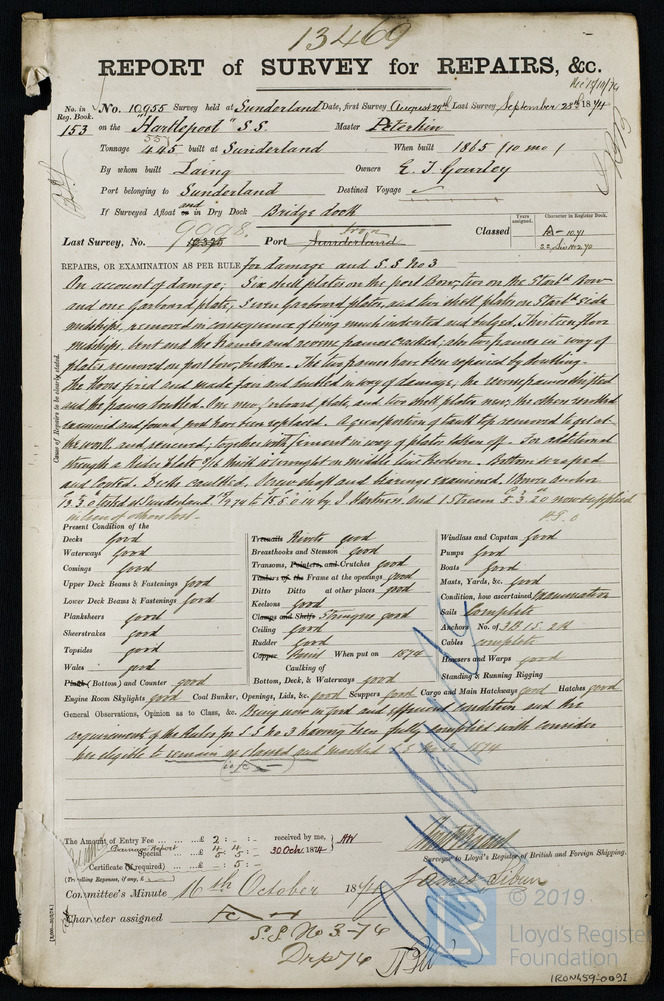 13469
REPORT of SURVEY for REPAIRS, &c.
Rec 15/10/74
No. in Reg. Book. No. 10,955 Survey held at Sunderland Date, first Survey August 29th Last Survey September 23rd 1874
153 on the "Hartlepool" S.S. Master Peterkin
Tonnage 445 built at Sunderland When built 1865 (10 mo)
By whom built Laing Owners E. T. Gourley
Port belonging to Sunderland Destined Voyage
If Surveyed Afloat or and in Dry Dock Bridge dock
Years assigned. Character in Register Book.
Classed A- 10,71
Last Survey, No. 9998 Port Sunderland
REPAIRS, OR EXAMINATION AS PER RULE for damage and S.S. No 3
Cause of Repairs to be clearly stated.
On account of damage; Six shell plates on the port Bow, two on the Starbd Bow
and one Garboard plate; Seven Garboard plates, and two shell plates on Starbd side
midships, removed in consequence of being much indented and bulged. Thirteen floors
midships, bent and the frames and reverse frames cracked; also two frames in way of
plates removed on port bow, broken. The two frames have been repaired by doubling.
The floors fired and made fair and doubled in way of damage; the reverse frames shifted
and the frames doubled. One new Garboard plate, and two shell plates new; the others
examined and found good have been replaced. A great portion of tank top removed to get at
the work, and renewed; together with Cement in way of plates taken off. For additional
strength a Rider Plate 9/16 thick is wrought on middle line Keelson. Bottom scraped
and coated. Decks caulked. Screw shaft and bearings examined. Bower anchor
tested at Sunderland to by J. Hartness and 1 Stream 5.3.20 now supplied
in lieu of others lost.
Present Condition of the
Decks Good
Waterways Good
Comings Good
Upper Deck Beams & Fastenings Good
Lower Deck Beams & Fastenings Good
Plansheers Good
Sheerstrakes Good
Topsides Good
Wales Good
Plank (Bottom) and Counter Good
Treenails Rivets good
Breasthooks and Stemson Good
Transoms, Pointers, and Crutches Good
Timbers of the Frame at the openings Good
Ditto Ditto at other places Good
Keelsons Good
Clamps and Shelfs Stringers good
Ceiling Good
Rudder Good
Copper Paint When put on 1874
Caulking of
Bottom, Deck, & Waterways Good
Windlass and Capstan Good
Pumps Good
Boats Good
Masts, Yards, &c. Good
Condition, how ascertained Examination
Sails Complete
Anchors No. of 3B 1S. 2K
Cables complete
Hawsers and Warps good
Standing & Running Rigging
Engine Room Skylights good Coal Bunker, Openings, Lids, &c. good Scuppers good Cargo and Main Hatchways good Hatches good
General Observations, Opinion as to Class, &c. Being now in good and efficient condition and the
requirements of the Rules for S.S. No 3 having been fully complied with consider
her eligible to remain as classed and marked S.S. No. 3. 1874
The Amount of Entry Fee £ 2 : - : - received by me,
Damage Report Special £ 4 : 4 : -
Certificate (if required) £ - 5 : 5 : -
30 Oct 1874
(Travelling Expenses, if any, £ )
Surveyor to Lloyd's Register of British and Foreign Shipping.
James Sibun
Committee's Minute 16th October 1874
Character assigned
S.S. No 3-74
Drp 74
© 2019
Lloyd's Register
Foundation
IRON459-0091